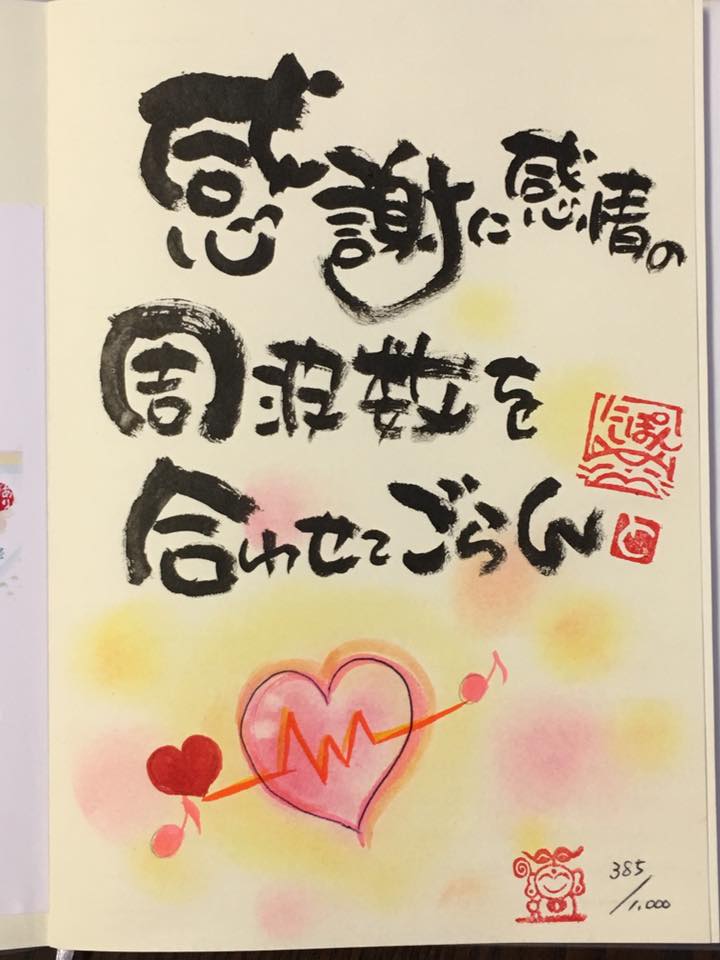 感謝に感情の
周波数を
合わせてごらん
にっぽん
385/1,000